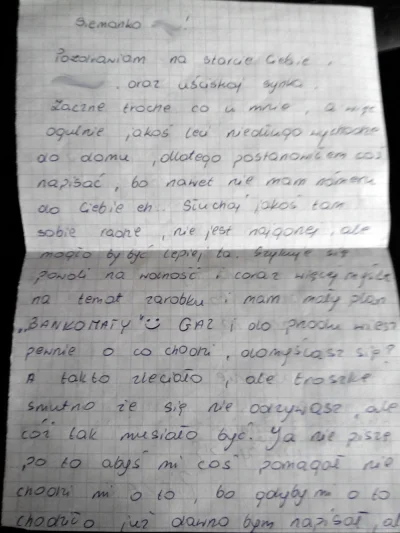 Siemanko !
Pozdrawiam na starcie Ciebie,
, oraz uściskaj synka.
Zacznę troche co u mnie, a więc
ogulnie jakoś leci niedługo wychodze
do domu, dlatego postanowiłem coś
napisać, bo nawet nie mam nómeru
do Ciebie eh.. Słuchaj jakoś tam
sobie radze, nie jest najgorzej, ale
mogło by być lepiej. Szykuje się
powoli na wolność i coraz więcej myśle
na temat zarobku i mam mały plan
"BANKOMATY" GAZ i do przodu wiesz
pewnie o co chodzi, domyślasz się?
A tak to zleciało, ale troszkę
smutno że się nie odzywasz, ale
cóż tak musiało być. Ja nie pisze
po to abyś mi coś pomagał nie
chodzi mi o to, bo gdyby mi o to
chodziło już dawno bym napisał, al